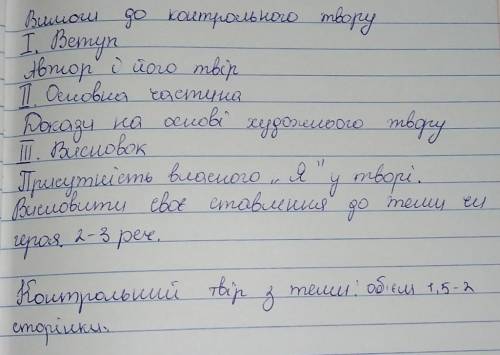 Вимоги до контрольного твору
I. Вступ
Автор і його твір
II. Основна частина
Докази на основі художнього твору
III. Висновок
Присутність власного „Я" у творі.
Висловити своє ставлення до теми чи
героя. 2-3 реч.
Контрольний твір з теми: об'єм 1,5-2
сторінки.